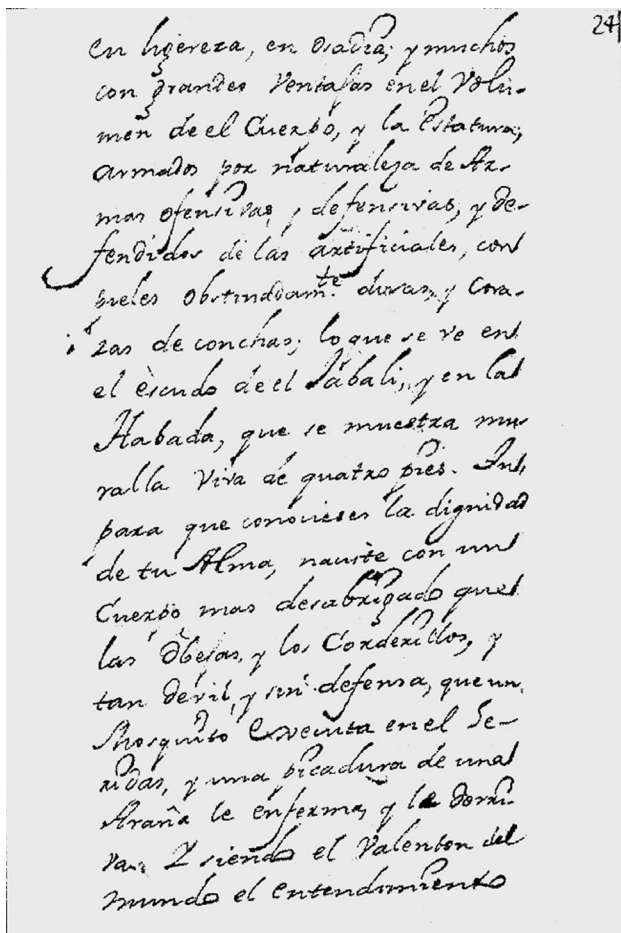 24
en ligereza, en osadia; y muchos
con grandes Ventajas en el Volu-
men de el Cuerpo, y la Estatura;
armados por naturaleza de Ar-
mas ofensivas, y defensivas, y de-
fendidos de las artificiales, con
pieles obstinadamte. duras, y Cora-
zas de conchas; lo que se ve en
el escudo de el Jabali, y en la
Habada, que se muestra mu-
ralla Viva de quatro pies. Tu
para que conocieses la dignidad
de tu Alma, naciste con un
Cuerpo mas desabrigado que
las Obejas, y los Corderillos, y
tan devil, y sin defensa, que un
Mosquito Executa en el He-
ridas, y una picadura de una
Araña le enferma, y le derri-
va. Y siendo el Valenton del
mundo el entendimiento